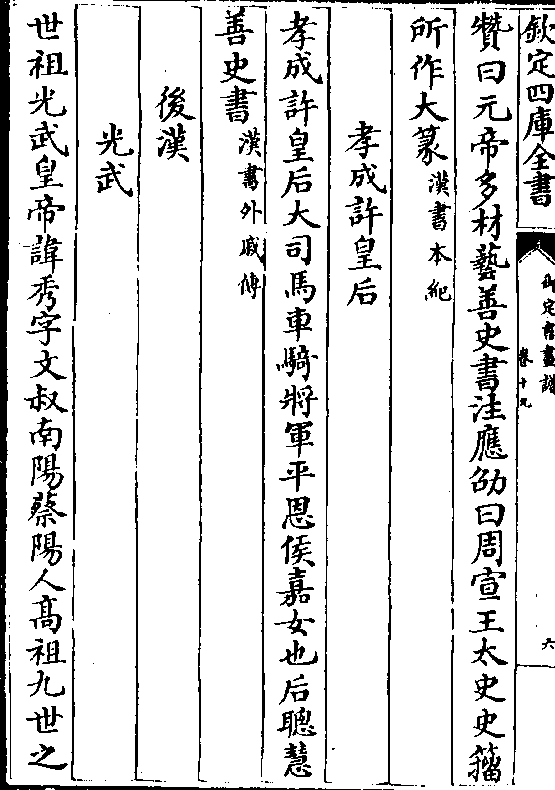 欽定四庫全書
御定書畫譜
卷十九
六
贊曰元帝多材藝善史書注應劭曰周宣王太史史籀
所作大篆漢書本紀
孝成許皇后
孝成許皇后大司馬車騎將軍平恩侯嘉女也后聰慧
善史書漢書外戚傳
後漢
光武
世祖光武皇帝諱秀字文叔南陽蔡陽人髙祖九世之